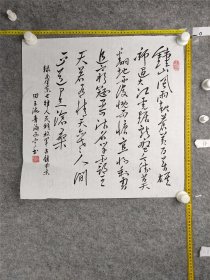 鍾山風雨起蒼黄百万雄
师过大江虎踞龙盘今胜昔天
翻地覆慨而慷宜将剩勇
追穷寇不可沽名学霸王
天若有情天亦老人间
正道是沧桑
七律人民解放军占领南京